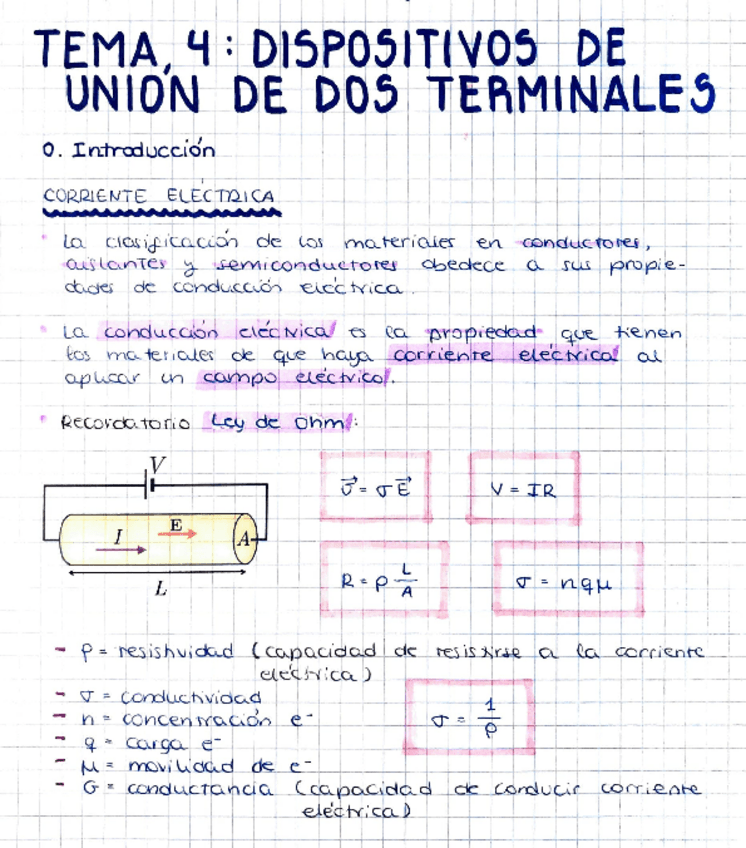 TEMA 4: DISPOSITIVOS DE
UNIÓN DE DOS TERMINALES
0. Introducción
CORRIENTE ELÉCTRICA
La clasificación de los materiales en conductores,
aislantes y semiconductores obedece a sus propie-
dades de conducción eléctrica.
La conducción eléctrica es la propiedad que tienen
los materiales de que haya corriente eléctrica al
aplicar un campo eléctrico.
Recordatorio Ley de Ohm:
V
I E A
L
J⃗ = σE⃗
V = IR
R = ρ L/A
σ = nqμ
- ρ = resistividad (capacidad de resistirse a la corriente
eléctrica)
- σ = conductividad
- n = concentración e⁻
- q = carga e⁻
- μ = movilidad de e⁻
- G = conductancia (capacidad de conducir corriente
eléctrica)
σ = 1/ρ